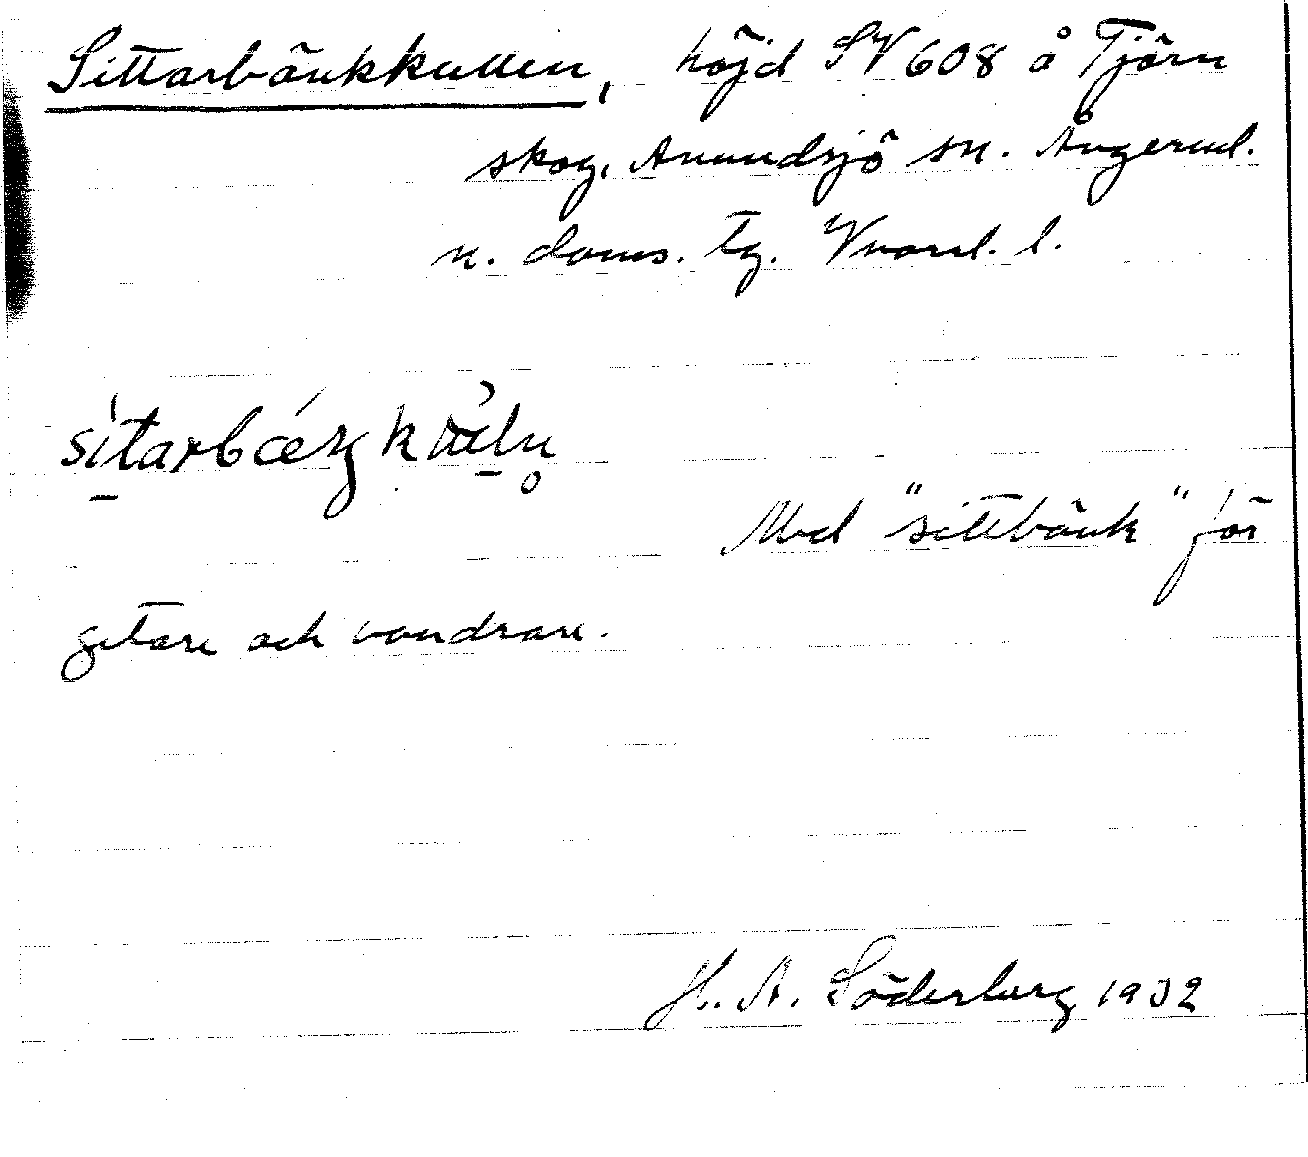 Sittarbänkkullen, höjd SV 608 å Tjärn
skog, Anundsjö sn. Ångerml.
n. doms. tg. Vnorrl. l.
Med "sittbänk" för
getare och vandrare.
H. A. Söderberg 1932